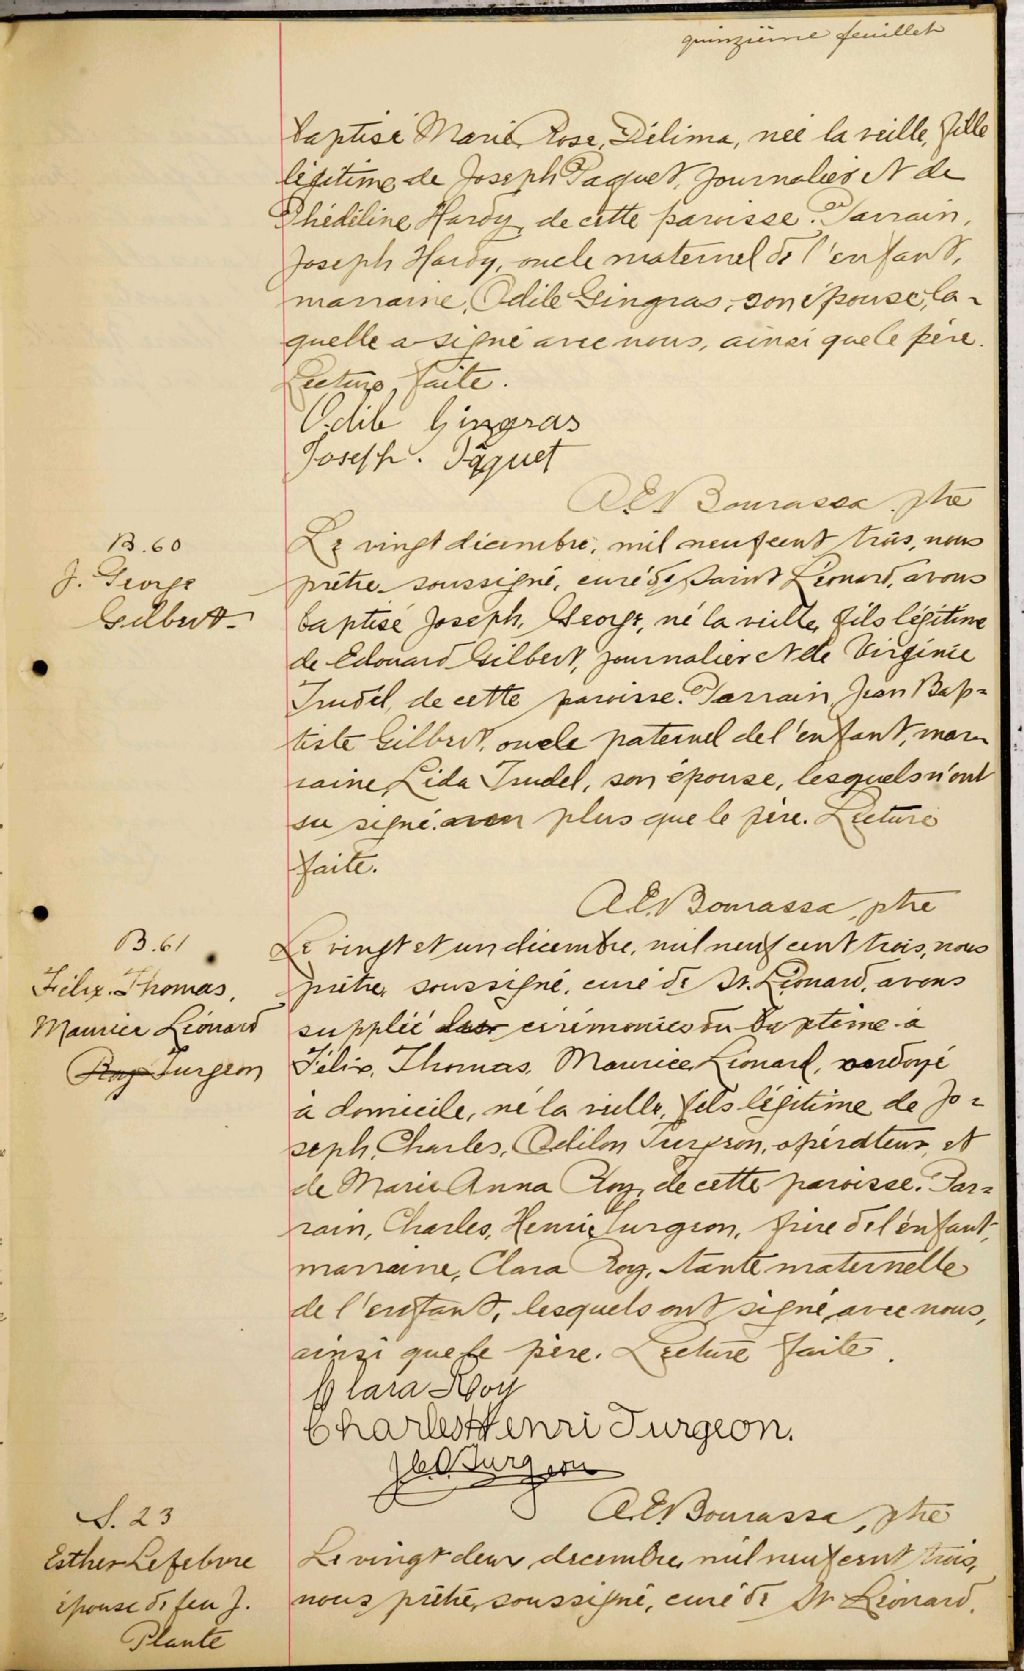 quinzième feuillet
baptisé Marie, Rose, Délima, née la veille, fille
légitime de Joseph Paquet, journalier et de
Phédéline Hardy, de cette paroisse. Parrain,
Joseph Hardy, oncle maternel de l'enfant,
marraine, Odile Gingras, son épouse, la-
quelle a signé avec nous, ainsi que le père.
Lecture faite.
Odile Gingras
Joseph. Paquet
A.E. Bourassa, ptre
B.60
J. George
Gilbert
Le vingt décembre, mil neuf cent trois, nous
prêtre soussigné, curé de Saint Léonard, avons
baptisé Joseph, George, né la veille, fils légitime
de Edouard Gilbert, journalier et de Virginie
Trudel, de cette paroisse. Parrain, Jean Bap=
tiste Gilbert, oncle paternel de l'enfant, mar-
raine, Lida Trudel, son épouse, lesquels n'ont
su signé non plus que le père. Lecture
faite.
A.E. Bourassa, ptre
B.61
Félix, Thomas,
Maurice Léonard
Roy Turgeon
Le vingt et un décembre, mil neuf cent trois, nous
prêtre, soussigné, curé de St. Léonard, avons
supplée les cérémonies du baptême à
Félix, Thomas, Maurice, Léonard, ondoyé
à domicile, né la veille, fils légitime de Jo=
seph, Charles, Odilon Turgeon, opérateur, et
de Marie Anna Roy, de cette paroisse. Par=
rain, Charles, Henri Turgeon, frère de l'enfant,
marraine, Clara Roy, tante maternelle
de l'enfant, lesquels ont signé, avec nous,
ainsi que le père. Lecture faite.
Clara Roy
Charles Henri Turgeon.
J.C.O. Turgeon
A.E. Bourassa, ptre
S. 23
Esther Lefebvre
épouse de feu J.
Plante
Le vingt deux, decembre, mil neuf cent trois,
nous prêtre, soussigné, curé de St Léonard,